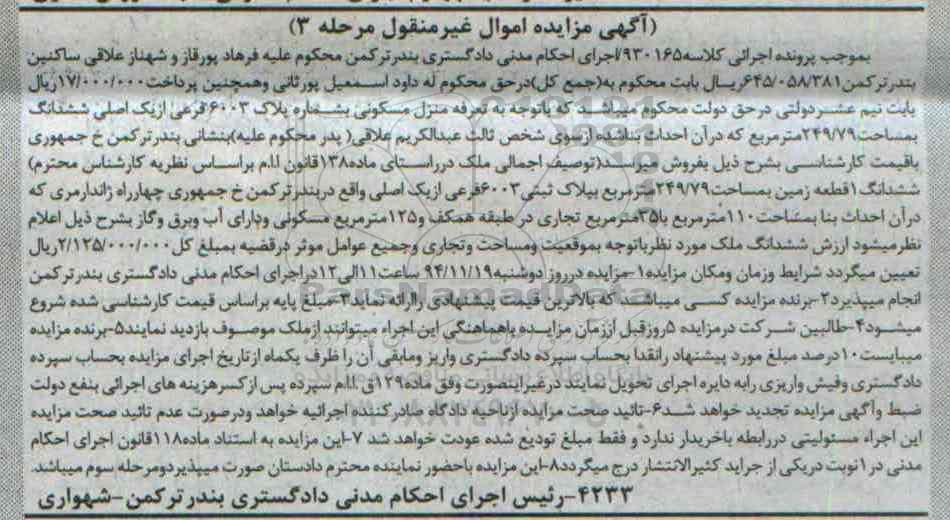 (آگهی مزایده اموال غیرمنقول مرحله ۳)
بموجب پرونده اجرائی کلاسه۹۳۰۱۶۵/اجرای احکام مدنی دادگستری بندرترکمن محکوم علیه فرهاد پورقاز و شهناز علاقی ساکنین
بندرترکمن۶۴۵/۰۵۸/۳۸۱ریال بابت محکوم به(جمع کل)درحق محکوم له داود اسمعیل پورثانی وهمچنین پرداخت۱۷/۰۰۰/۰۰۰ریال
بابت نیم عشردولتی درحق دولت محکوم میباشد که باتوجه به تعرفه منزل مسکونی بشماره پلاک ۶۰۰۳فرعی ازیک اصلی ششدانگ
بمساحت۲۴۹/۷۹مترمربع که درآن احداث بناشده ازسوی شخص ثالث عبدالکریم علاقی(پدر محکوم علیه)بنشانی بندرترکمن خ جمهوری
باقیمت کارشناسی بشرح ذیل بفروش میرسد(توصیف اجمالی ملک درراستای ماده۱۳۸قانون ا.ا.م براساس نظریه کارشناس محترم)
ششدانگ۱قطعه زمین بمساحت۲۴۹/۷۹مترمربع بپلاک ثبتی۶۰۰۳فرعی ازیک اصلی واقع دربندرترکمن خ جمهوری چهارراه ژاندارمری که
درآن احداث بنا بمساحت۱۱۰مترمربع با۳۵مترمربع تجاری در طبقه همکف و۱۲۵مترمربع مسکونی ودارای آب وبرق وگاز بشرح ذیل اعلام
نظرمیشود ارزش ششدانگ ملک مورد نظرباتوجه بموقعیت ومساحت وتجاری وجمیع عوامل موثر درقضیه بمبلغ کل۲/۱۲۵/۰۰۰/۰۰۰ریال
تعیین میگردد شرایط وزمان ومکان مزایده۱-مزایده درروز دوشنبه۹۴/۱۱/۱۹ ساعت۱۱الی۱۲دراجرای احکام مدنی دادگستری بندرترکمن
انجام میپذیرد۲-برنده مزایده کسی میباشد که بالاترین قیمت پیشنهادی راارائه نماید۳-مبلغ پایه براساس قیمت کارشناسی شده شروع
میشود۴-طالبین شرکت درمزایده ۵روزقبل اززمان مزایده باهماهنگی این اجراء میتوانند ازملک موصوف بازدید نمایند۵-برنده مزایده
میبایست۱۰درصد مبلغ مورد پیشنهاد رانقدا بحساب سپرده دادگستری واریز ومابقی آن را ظرف یکماه ازتاریخ اجرای مزایده بحساب سپرده
دادگستری وفیش واریزی رابه دایره اجرای تحویل نمایند درغیراینصورت وفق ماده۱۲۹ق.ا.ا.م سپرده پس ازکسرهزینه های اجرائی بنفع دولت
ضبط وآگهی مزایده تجدید خواهد شد۶-تائید صحت مزایده ازناحیه دادگاه صادرکننده اجرائیه خواهد ودرصورت عدم تائید صحت مزایده
این اجراء مسئولیتی دررابطه باخریدار ندارد و فقط مبلغ تودیع شده عودت خواهد شد ۷-این مزایده به استناد ماده۱۱۸قانون اجرای احکام
مدنی در۱نوبت دریکی از جراید کثیرالانتشار درج میگردد۸-این مزایده باحضور نماینده محترم دادستان صورت میپذیردومرحله سوم میباشد.
۴۲۳۳-رئیس اجرای احکام مدنی دادگستری بندرترکمن-شهواری
ParsNamadData